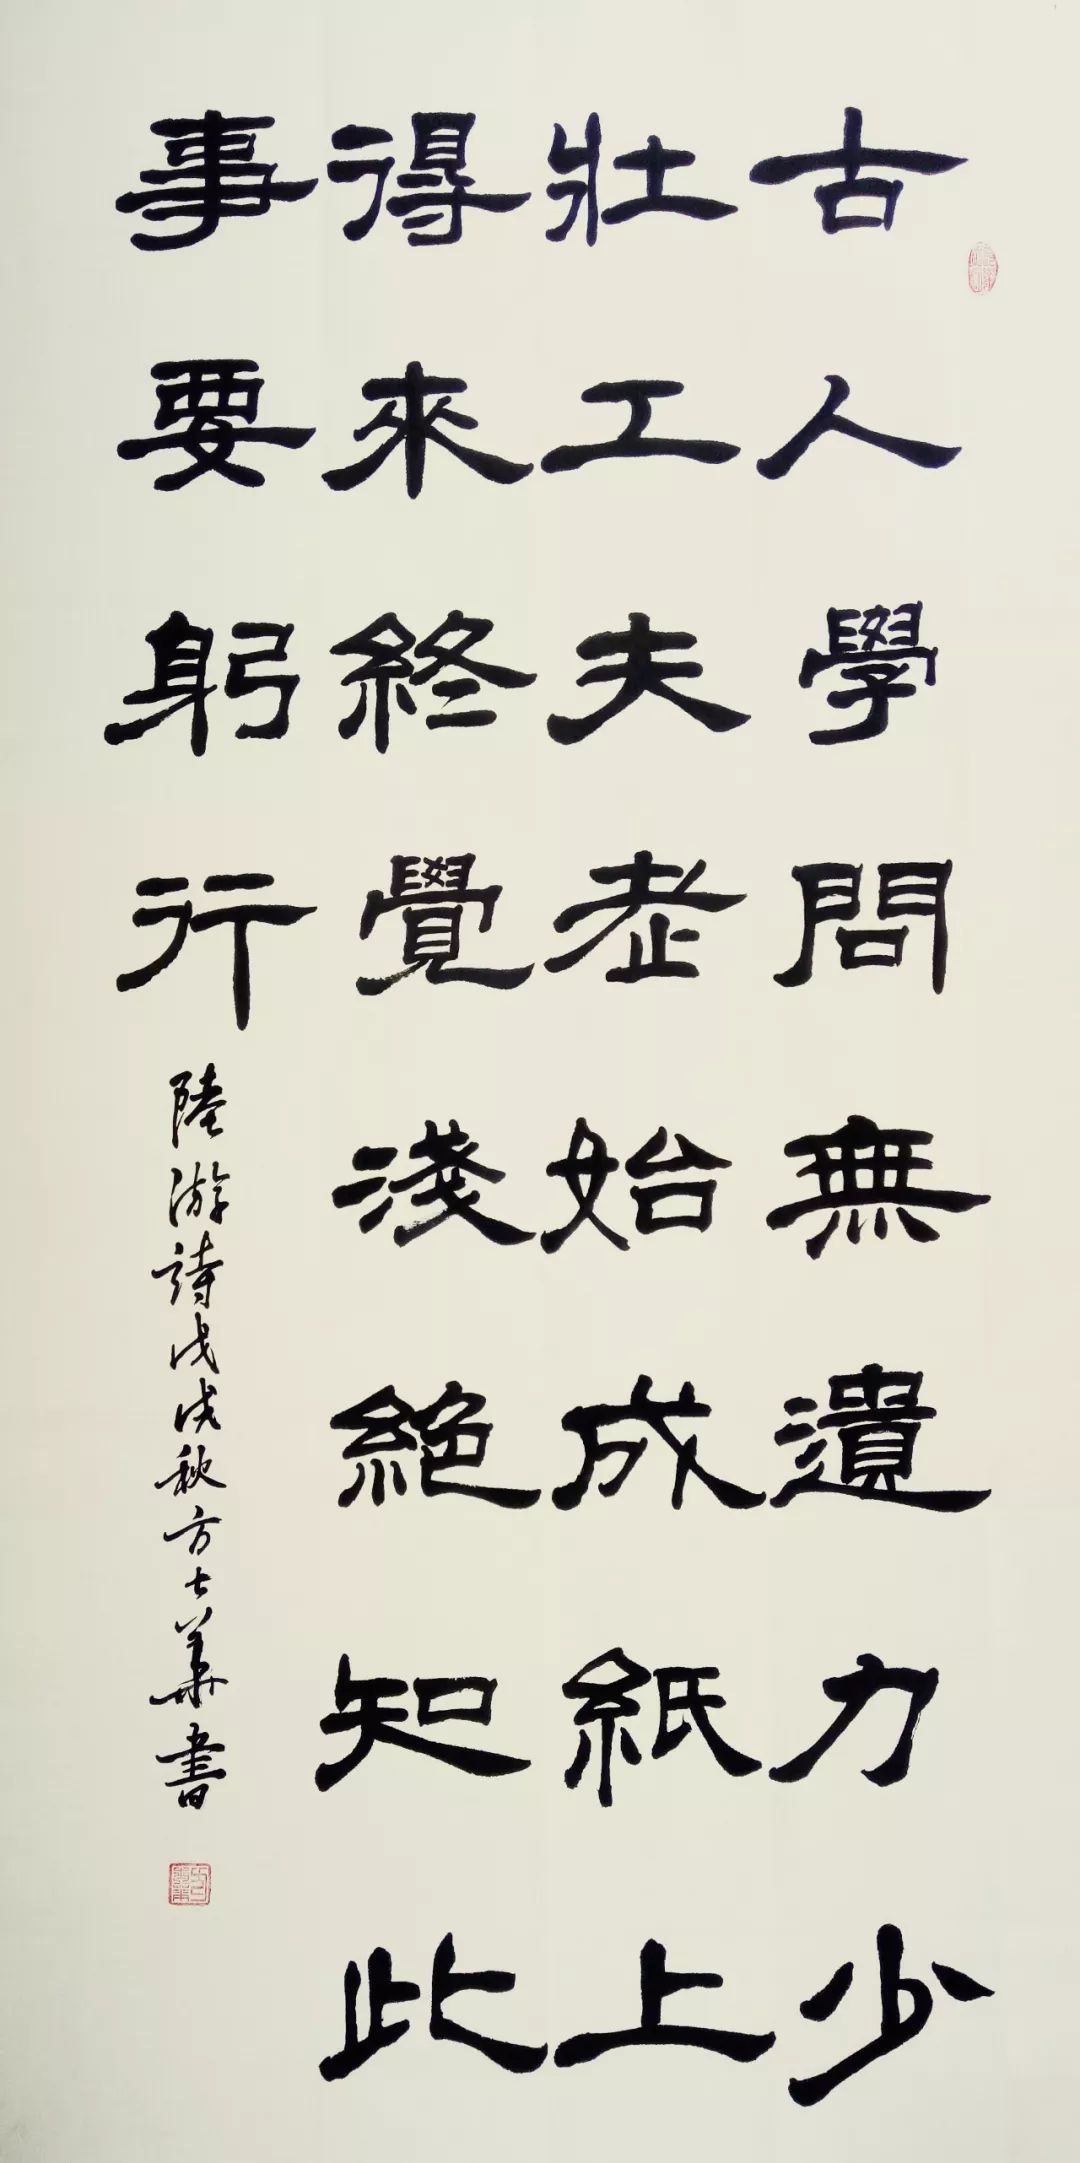 古人學問無遺力少
壯工夫老始成紙上
得來終覺淺絕知此
事要躬行
陸游詩戊戌秋方士華書